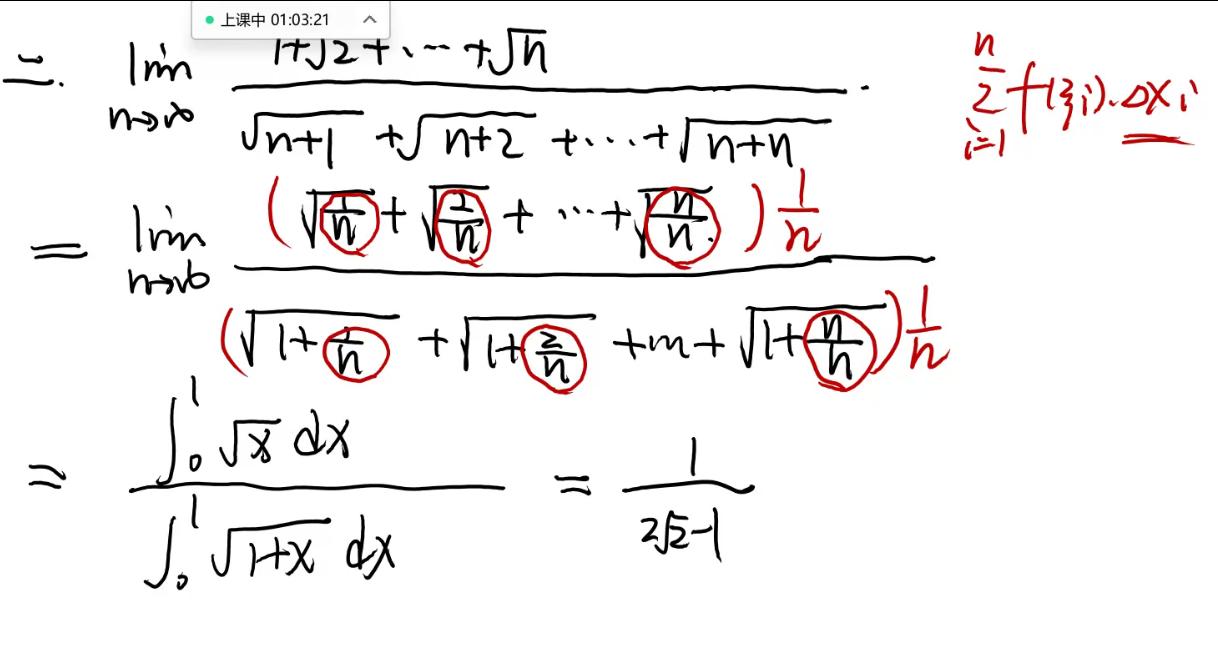 上课中 01:03:21
二. lim n→∞ (1+√2+⋯+√n) / (√(n+1) + √(n+2) + ⋯ + √(n+n)) .
∑_{i=1}^{n} f(ξi)·Δxi
= lim n→∞ (√(1/n) + √(2/n) + ⋯ + √(n/n)) 1/n / (√(1+1/n) + √(1+2/n) + ⋯ + √(1+n/n)) 1/n
= ∫₀¹ √x dx / ∫₀¹ √(1+x) dx = 1 / (2√2-1)